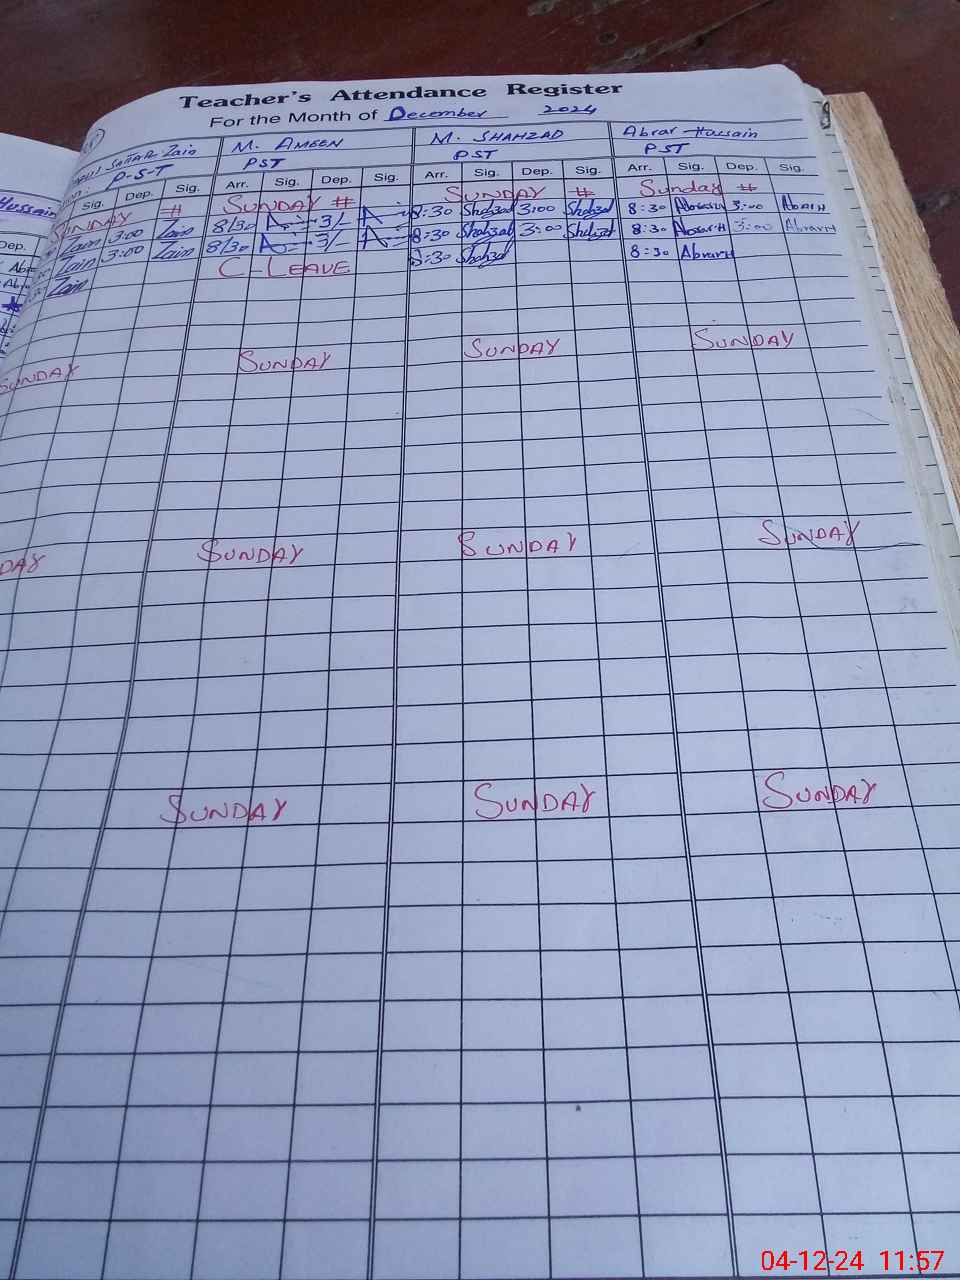 Teacher's Attendance Register
For the Month of December 2024
Sattar Zain M. AMEEN M. SHAHZAD Abrar Hussain
P-S-T PST PST PST
Sig. Dep. Sig. Arr. Sig. Dep. Sig. Arr. Sig. Dep. Sig. Arr. Sig. Dep. Sig.
SUNDAY # SUNDAY # SUNDAY # Sunday #
Zain 3:00 Zain 8/30 3/- 8:30 Shahzad 3:00 Shahzad 8:30 AbrarH 3:00 AbrarH
Zain 3:00 Zain 8/30 3/- 8:30 Shahzad 3:00 Shahzad 8:30 AbrarH 3:00 AbrarH
Zain C-LEAVE 8:30 Shahzad 8:30 AbrarH
SUNDAY SUNDAY SUNDAY SUNDAY
DAY SUNDAY SUNDAY SUNDAY
SUNDAY SUNDAY SUNDAY
Hussain
Dep.
Abr
Abr
04-12-24 11:57